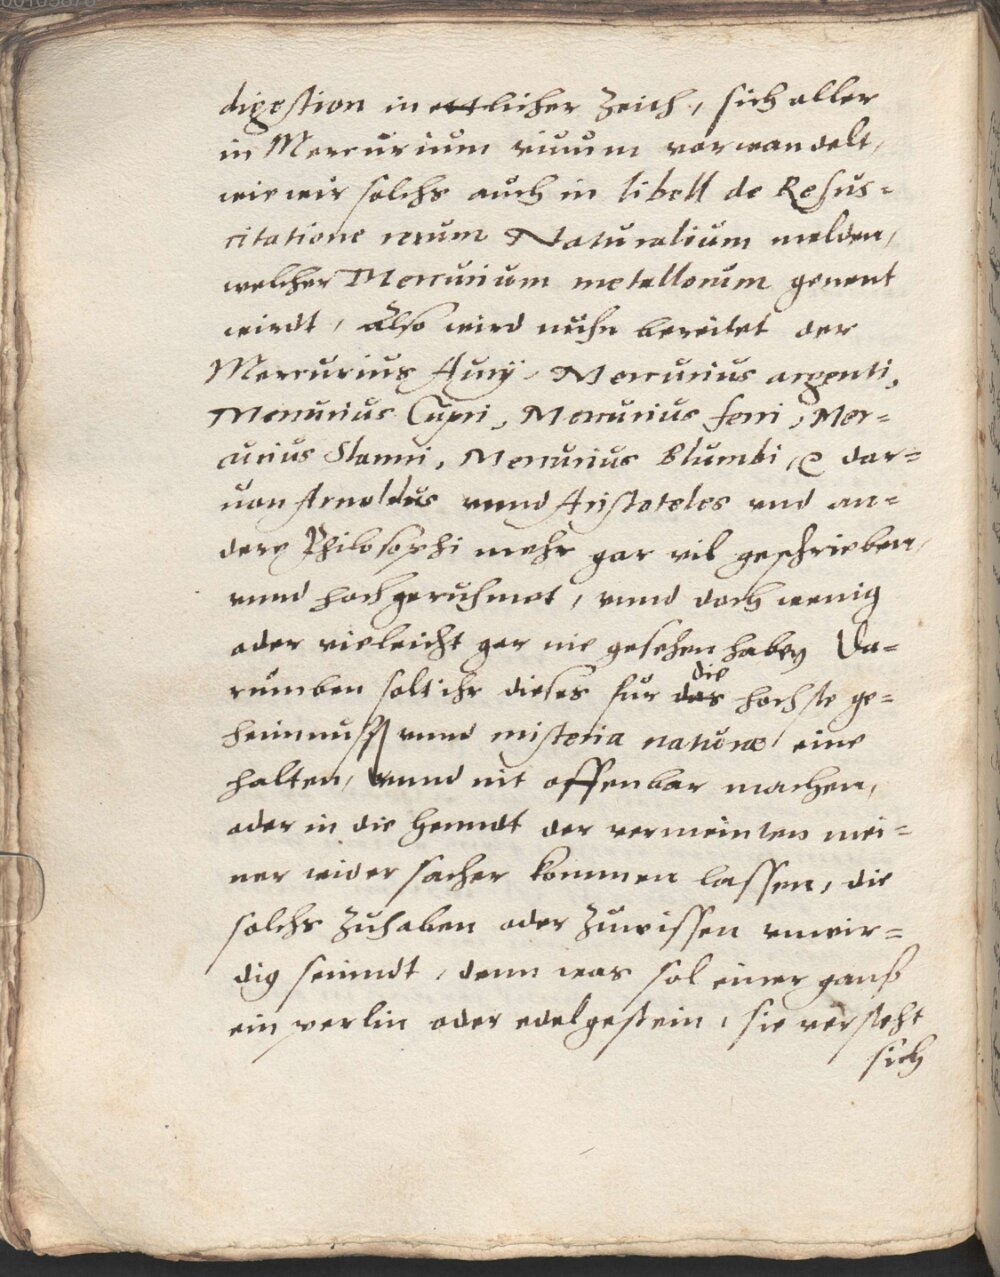 digestion in ettlicher Zeich, sich aller
in Mercurium viuum verwandelt,
wie wir solchs auch in libell de Resus=
citatione rerum Naturalium melden,
welcher Mercurium metallorum genent
wirdt, Also wird nuhn bereitet der
Mercurius Aurij, Mercurius argenti,
Mercurius Cupri, Mercurius ferri, Mer=
curius Stanni, Mercurius Blumbi, & dar=
uon Arnoldus vnnd Aristoteles vnd an=
dere Philosophi mehr gar vil geschrieben,
vnnd hochgeruhmet, vnnd doch wenig
oder vieleicht gar nie gesehen haben Da=
rumben solt ihr dieses fur das die hochste ge=
heimnuss vnnd misteria naturæ eine
halten, vnnd nit offenbar machen,
oder in die Henndt der vermeinten mei=
ner wider sacher kommen lassen, die
solchs Zuhaben oder Zuwissen vnwir=
dig seinndt, denn was sol einer ganß
ein perlin oder edelgestein, sie versteht
sich